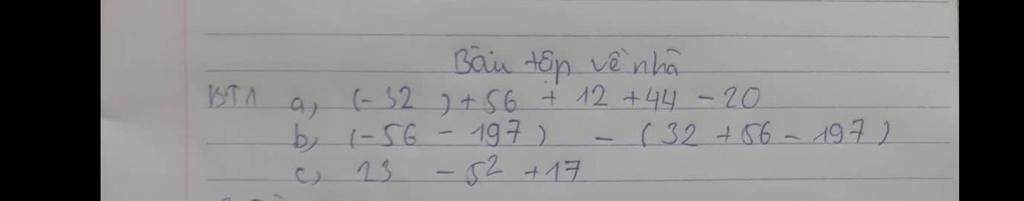 Bài tập về nhà
BT1 a, (-32) + 56 + 12 + 44 - 20
b, (-56 - 197) - (32 + 56 - 197)
c, 23 - 5² + 17